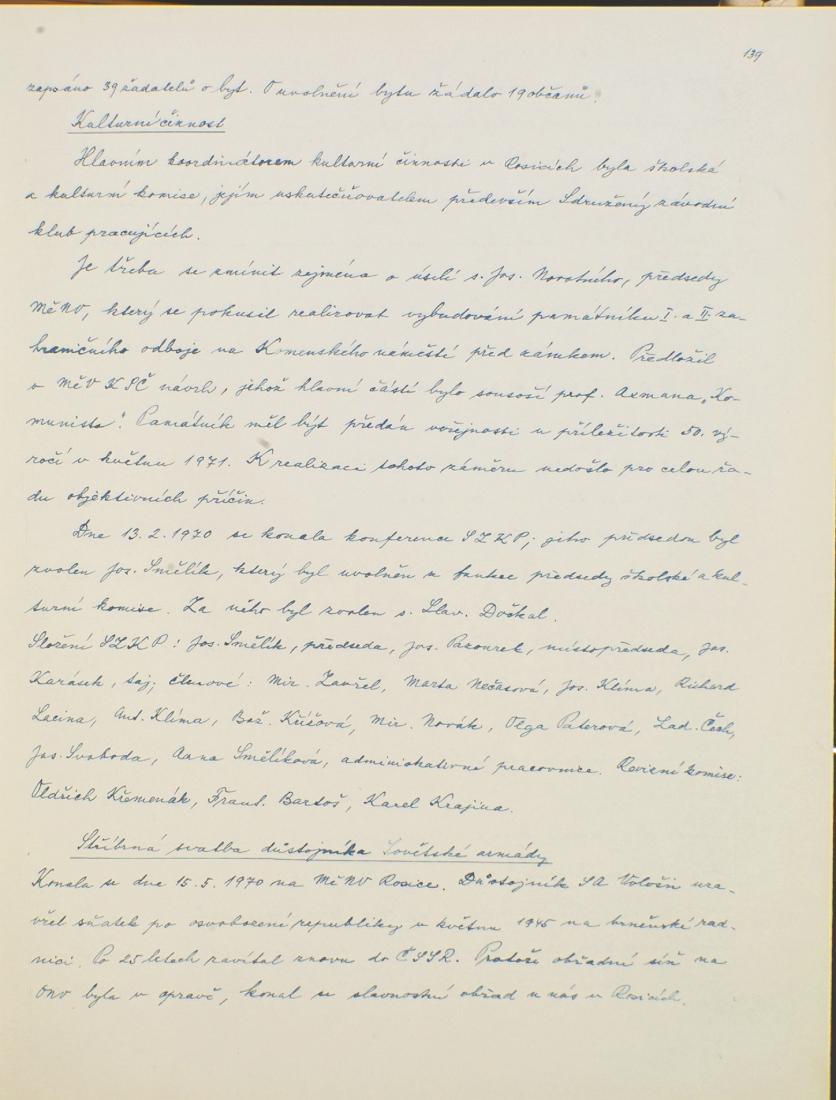 139
zapsáno 39 žadatelů o byt. O uvolnění bytu žádalo 19 občanů.
Kulturní činnost
Hlavním koordinátorem kulturní činnosti v Rosicích byla školská
a kulturní komise, jejím uskutečňovatelem především Sdružený závodní
klub pracujících.
Je třeba se zmínit zejména o úsilí s. Jos. Novotného, předsedy
MěNV, který se pokusil realizovat vybudování památníku I. a II. za-
hraničního odboje na Komenského náměstí před zámkem. Předložil
v MěV KSČ návrh, jehož hlavní částí bylo sousoší prof. Axmana „Ko-
munista". Památník měl být předán veřejnosti u příležitosti 50. vý-
ročí v květnu 1971. K realizaci tohoto záměru nedošlo pro celou řa-
du objektivních příčin.
Dne 13. 2. 1970 se konala konference SZKP; jeho předsedou byl
zvolen Jos. Smělík, který byl uvolněn z funkce předsedy školské a kul-
turní komise. Za něho byl zvolen s. Slav. Dočkal.
Složení SZKP: Jos. Smělík, předseda, Jos. Pazourek, místopředseda, Jos.
Karásek, taj; členové: Mir. Zavřel, Marta Nečasová, Jos. Klíma, Richard
Lacina, Ant. Klíma, Bož. Mir. Novák, Olga Paterová, Lad. Čech,
Jos. Svoboda, Anna Smělíková, administrativní pracovnice. Revizní komise:
Oldřich Křemenák, Frant. Bartoš, Karel Krajina.
Stříbrná svatba důstojníka Sovětské armády
Konala se dne 15. 5. 1970 na MěNV Rosice. Důstojník SA Vološin uza-
vřel sňatek po osvobození republiky v květnu 1945 na brněnské rad-
nici. Po 25 letech zavítal znovu do ČSSR. Protože obřadní síň na
ONV byla v opravě, konal se slavnostní obřad u nás v Rosicích.